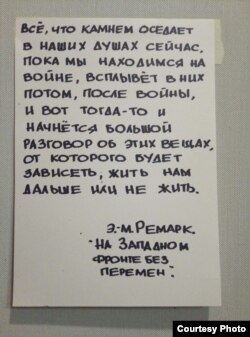 ВСЁ, ЧТО КАМНЕМ ОСЕДАЕТ
В НАШИХ ДУШАХ СЕЙЧАС,
ПОКА МЫ НАХОДИМСЯ НА
ВОЙНЕ, ВСПЛЫВЁТ В НИХ
ПОТОМ, ПОСЛЕ ВОЙНЫ,
И ВОТ ТОГДА-ТО И
НАЧНЁТСЯ БОЛЬШОЙ
РАЗГОВОР ОБ ЭТИХ ВЕЩАХ,
ОТ КОТОРОГО БУДЕТ
ЗАВИСЕТЬ, ЖИТЬ НАМ
ДАЛЬШЕ ИЛИ НЕ ЖИТЬ.
Э.-М. РЕМАРК.
"НА ЗАПАДНОМ
ФРОНТЕ БЕЗ
ПЕРЕМЕН".
Courtesy Photo